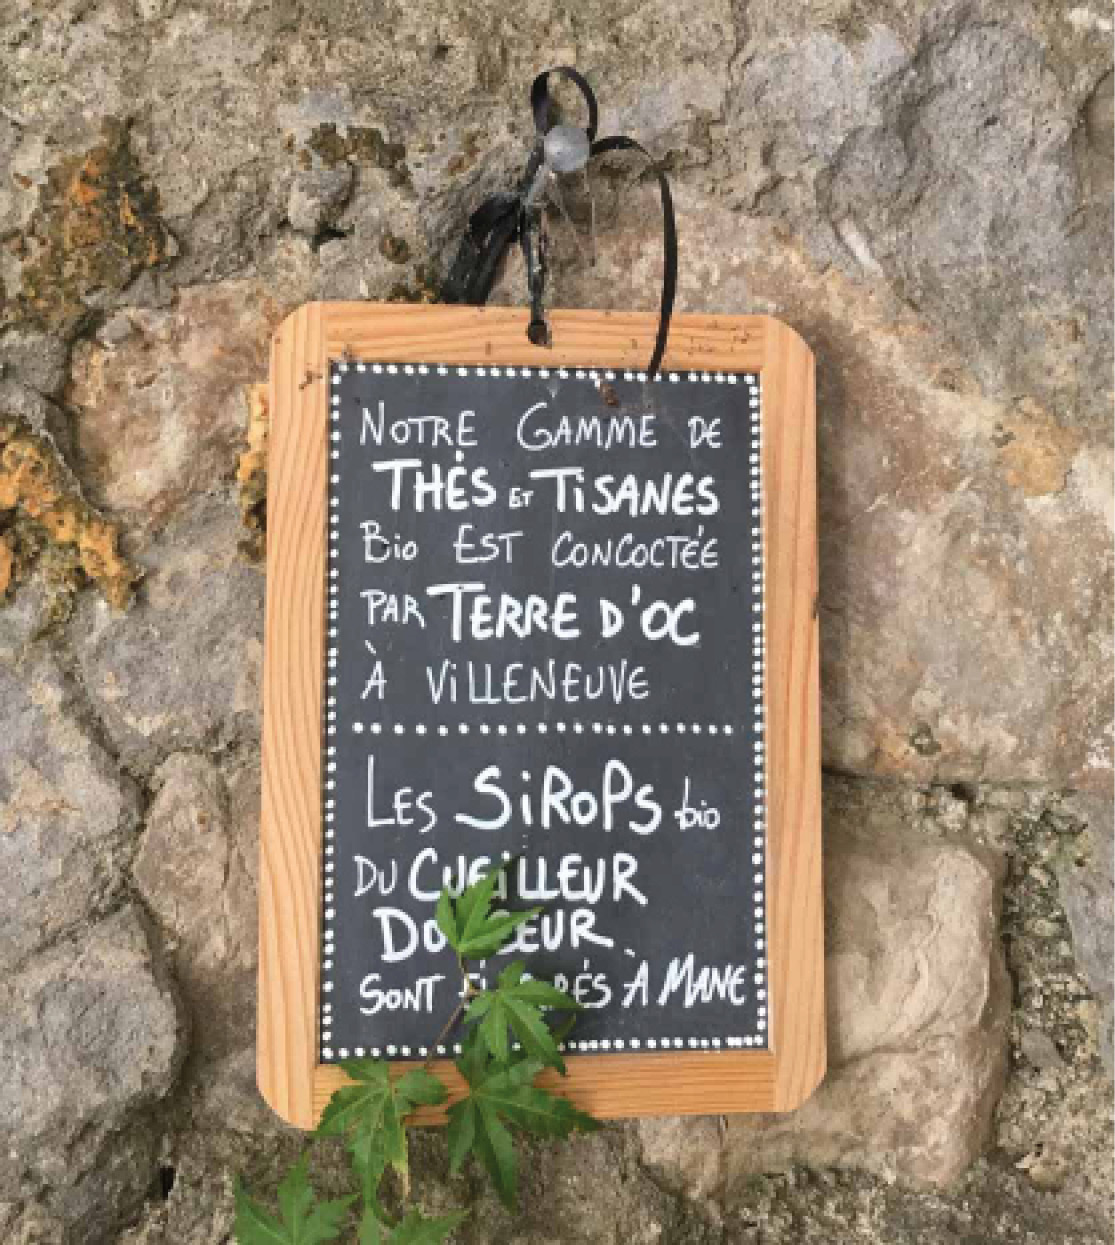 NOTRE GAMME DE
THÉS ET TiSANES
Bio EST CONCOCTÉE
PAR TERRE D'OC
À ViLLENEUVE
LES SiRoPs bio
DU CUEiLLEUR
DOUCEUR
SONT À MANE